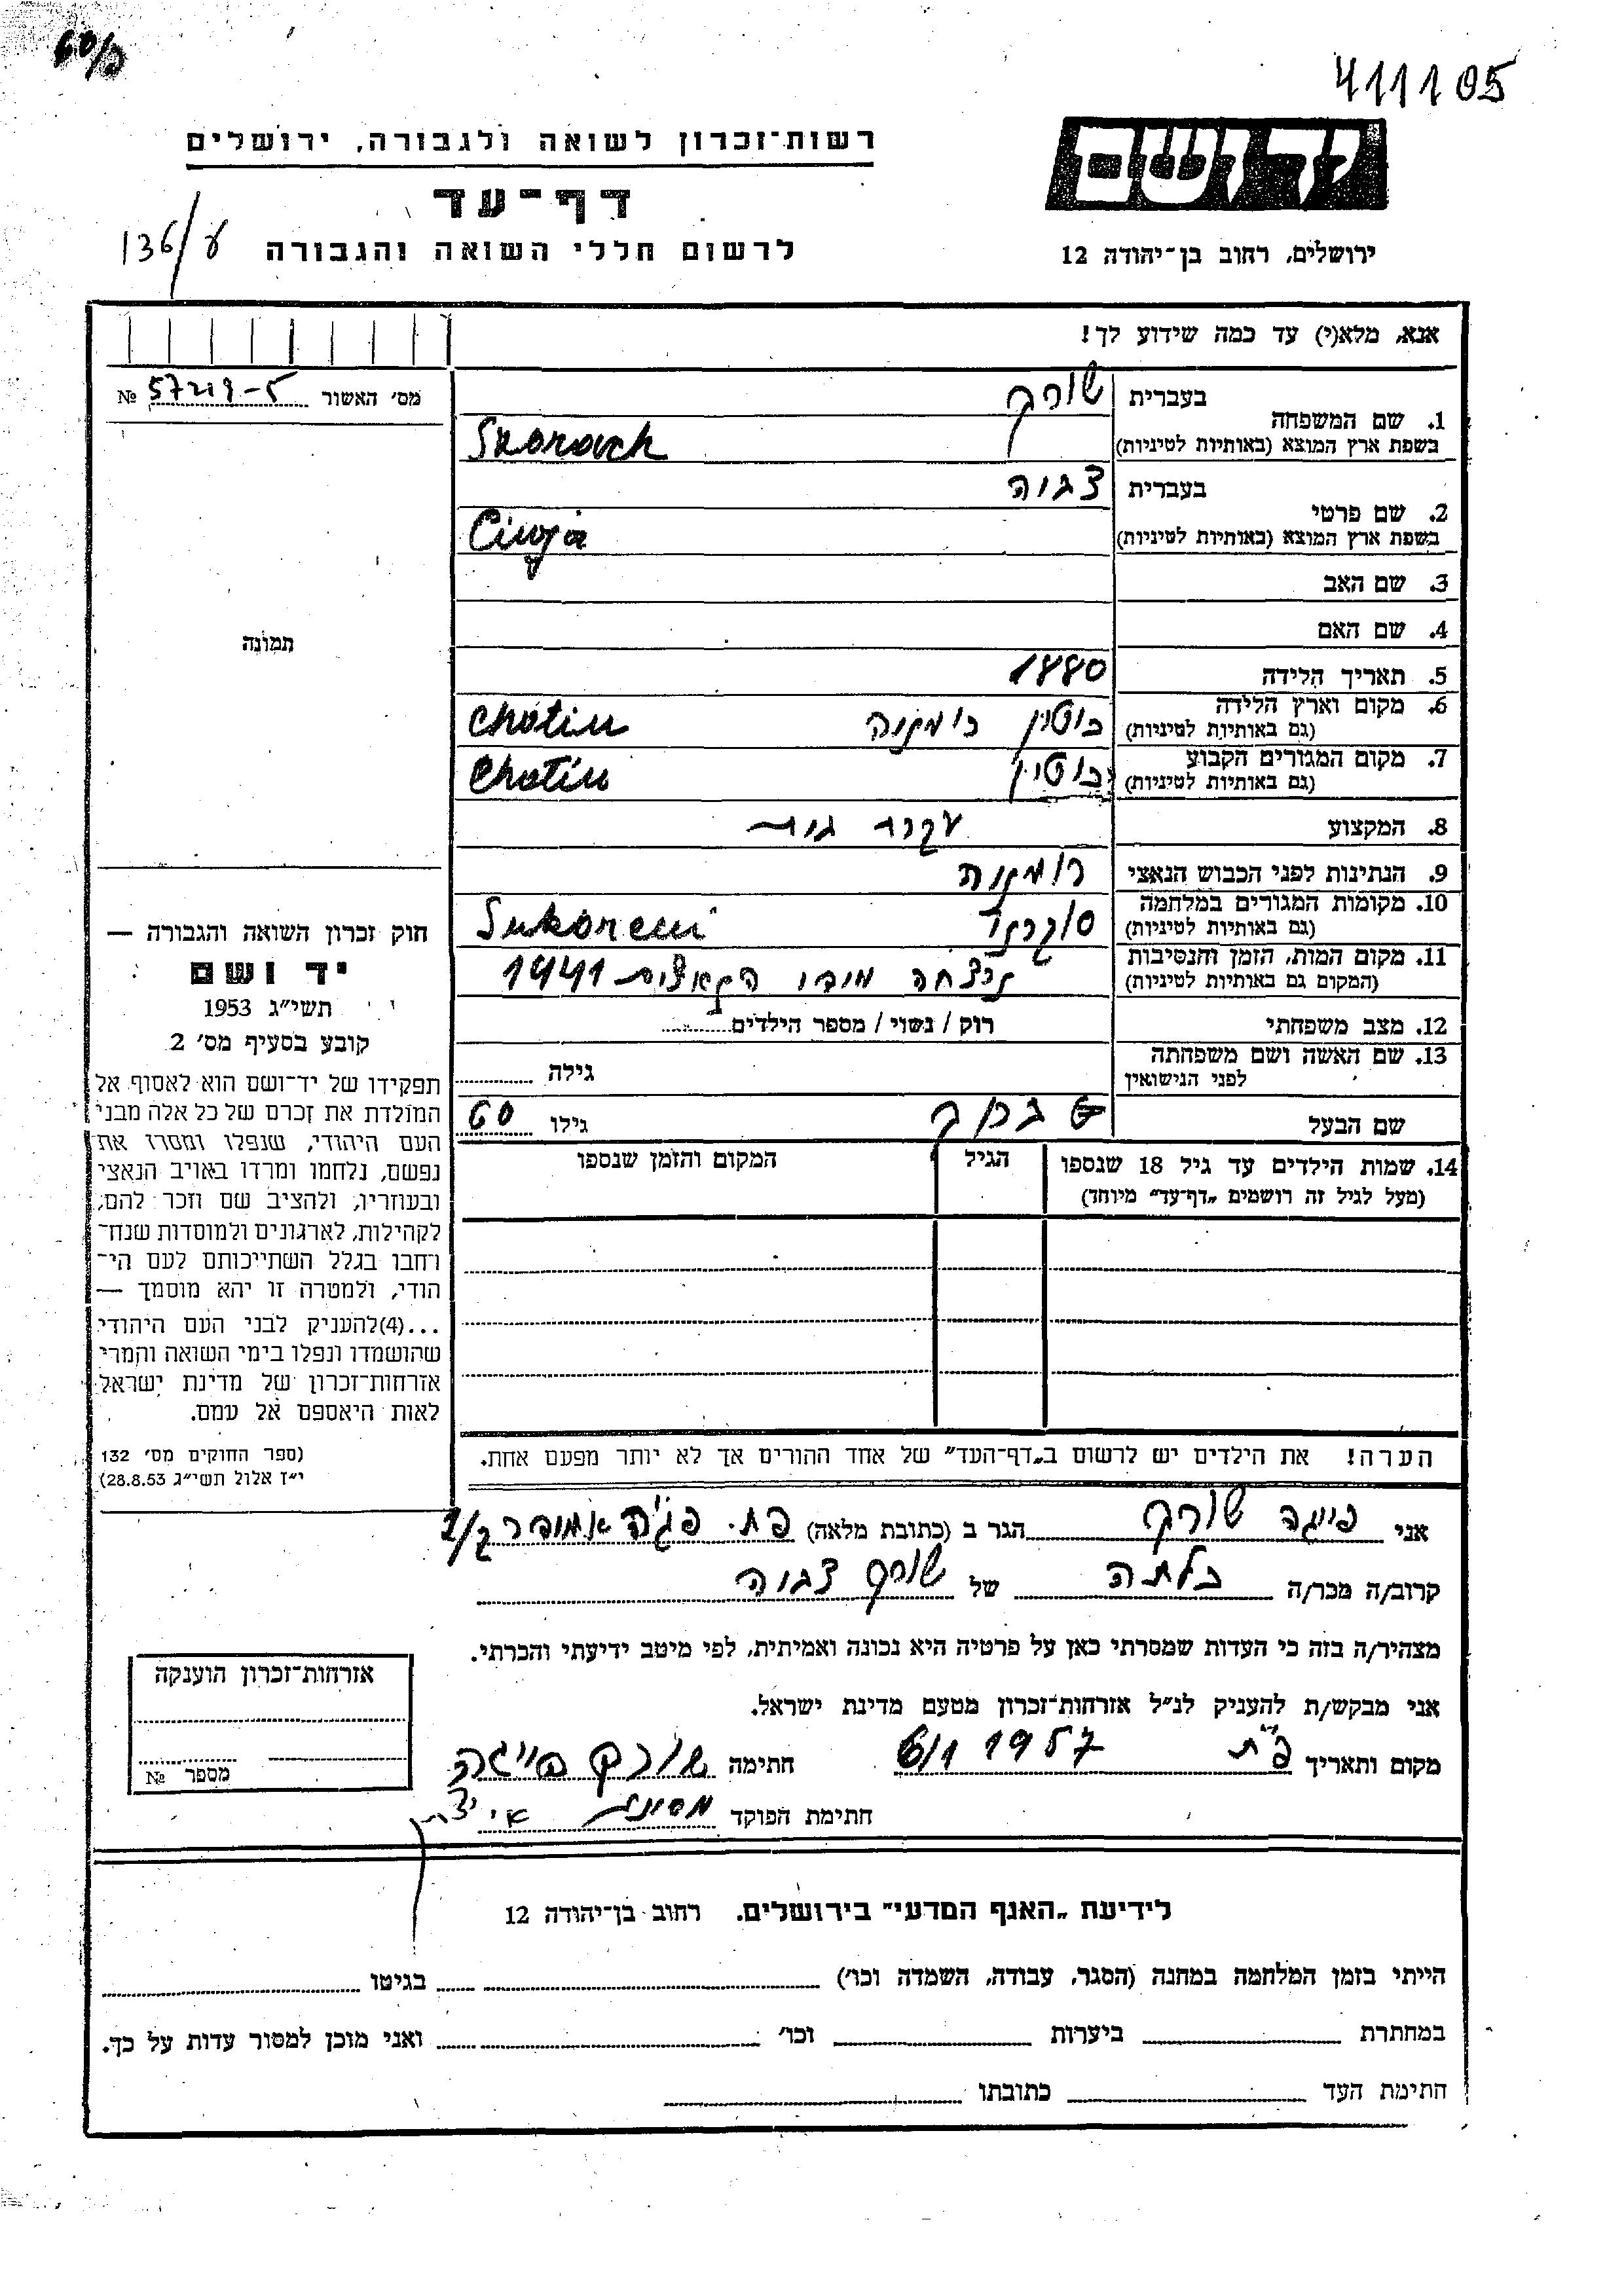 60/פ
411105
רשות־זכרון לשואה ולגבורה, ירושלים
יד ושם
דף־עד
136/ע
לרשום חללי השואה והגבורה
ירושלים, רחוב בן־יהודה 12
אנא, מלא(י) עד כמה שידוע לך!
מס׳ האשור № 57219-5
1. שם המשפחה
בעברית
בשפת ארץ המוצא (באותיות לטיניות)
2. שם פרטי
בעברית
צביה
בשפת ארץ המוצא (באותיות לטיניות)
3. שם האב
4. שם האם
תמונה
5. תאריך הלידה 1880
6. מקום וארץ הלידה
(גם באותיות לטיניות)
חוטין רומניה Chotin
7. מקום המגורים הקבוע
(גם באותיות לטיניות)
חוטין Chotin
8. המקצוע
עקרת בית
9. הנתינות לפני הכבוש הנאצי רומנית
10. מקומות המגורים במלחמה
(גם באותיות לטיניות)
11. מקום המות, הזמן והנסיבות
(המקום גם באותיות לטיניות)
נרצחה מידי הנאצים 1941
12. מצב משפחתי רוק / נשוי / מספר הילדים
13. שם האשה ושם משפחתה
לפני הנישואין
גילה
שם הבעל ברוך גילו 60
14. שמות הילדים עד גיל 18 שנספו
(מעל לגיל זה רושמים „דף־עד״ מיוחד)
הגיל
המקום והזמן שנספו
חוק זכרון השואה והגבורה —
יד ושם
תשי״ג 1953
קובע בסעיף מס׳ 2
תפקידו של יד־ושם הוא לאסוף אל
המולדת את זכרם של כל אלה מבני
העם היהודי, שנפלו ומסרו את
נפשם, נלחמו ומרדו באויב הנאצי
ובעוזריו, ולהציב שם וזכר להם,
לקהילות, לארגונים ולמוסדות שנח־
רחבו בגלל השתייכותם לעם הי־
הודי, ולמטרה זו יהא מוסמך —
...(4)להעניק לבני העם היהודי
שהושמדו ונפלו בימי השואה והמרי
אזרחות־זכרון של מדינת ישראל
לאות היאספם אל עמם.
(ספר החוקים מס׳ 132
י״ז אלול תשי״ג 28.8.53)
הערה! את הילדים יש לרשום ב„דף־העד״ של אחד ההורים אך לא יותר מפעם אחת.
אני פייגה שורף הגר ב (כתובת מלאה) פת.
קרוב/ה מכר/ה כלתה של שורף צביה
מצהיר/ה בזה כי העדות שמסרתי כאן על פרטיה היא נכונה ואמיתית, לפי מיטב ידיעתי והכרתי.
אני מבקש/ת להעניק לנ״ל אזרחות־זכרון מטעם מדינת ישראל.
מקום ותאריך פ״ת 6/1 1957 חתימה שורף פייגה
חתימת הפוקד
אזרחות־זכרון הוענקה
מספר №
לידיעת „האגף המדעי״ בירושלים. רחוב בן־יהודה 12
הייתי בזמן המלחמה במחנה (הסגר, עבודה, השמדה וכו׳) בגיטו
במחתרת ביערות וכו׳ ואני מוכן למסור עדות על כך.
חתימת העד כתובתו